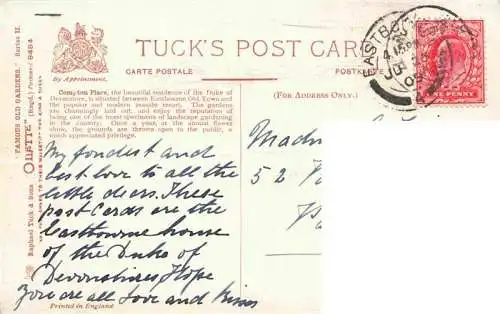 TUCK'S POST CARD
By Appointment.
CARTE POSTALE
POSTKARTE
(FOR ADDRESS ONLY.)
Compton Place, the beautiful residence of the Duke of
Devonshire, is situated between Eastbourne Old Town and
the popular modern seaside resort. The gardens
are charmingly laid out, and enjoy the reputation of
being one of the finest specimens of landscape gardening
in the county. Once a year, at the annual flower
show, the grounds are thrown open to the public, a
much appreciated privilege.
"FAMOUS OLD GARDENS." Series II.
Raphael Tuck & Sons "OILETTE" (Regd.) Postcard 9494
My fondest and
best love to all the
little dears. These
post cards are the
Eastbourne house
of the Duke of
Devonshires Hope
you are all Love and Kisses
Printed in England
Madm
52
EASTBO
ONE PENNY